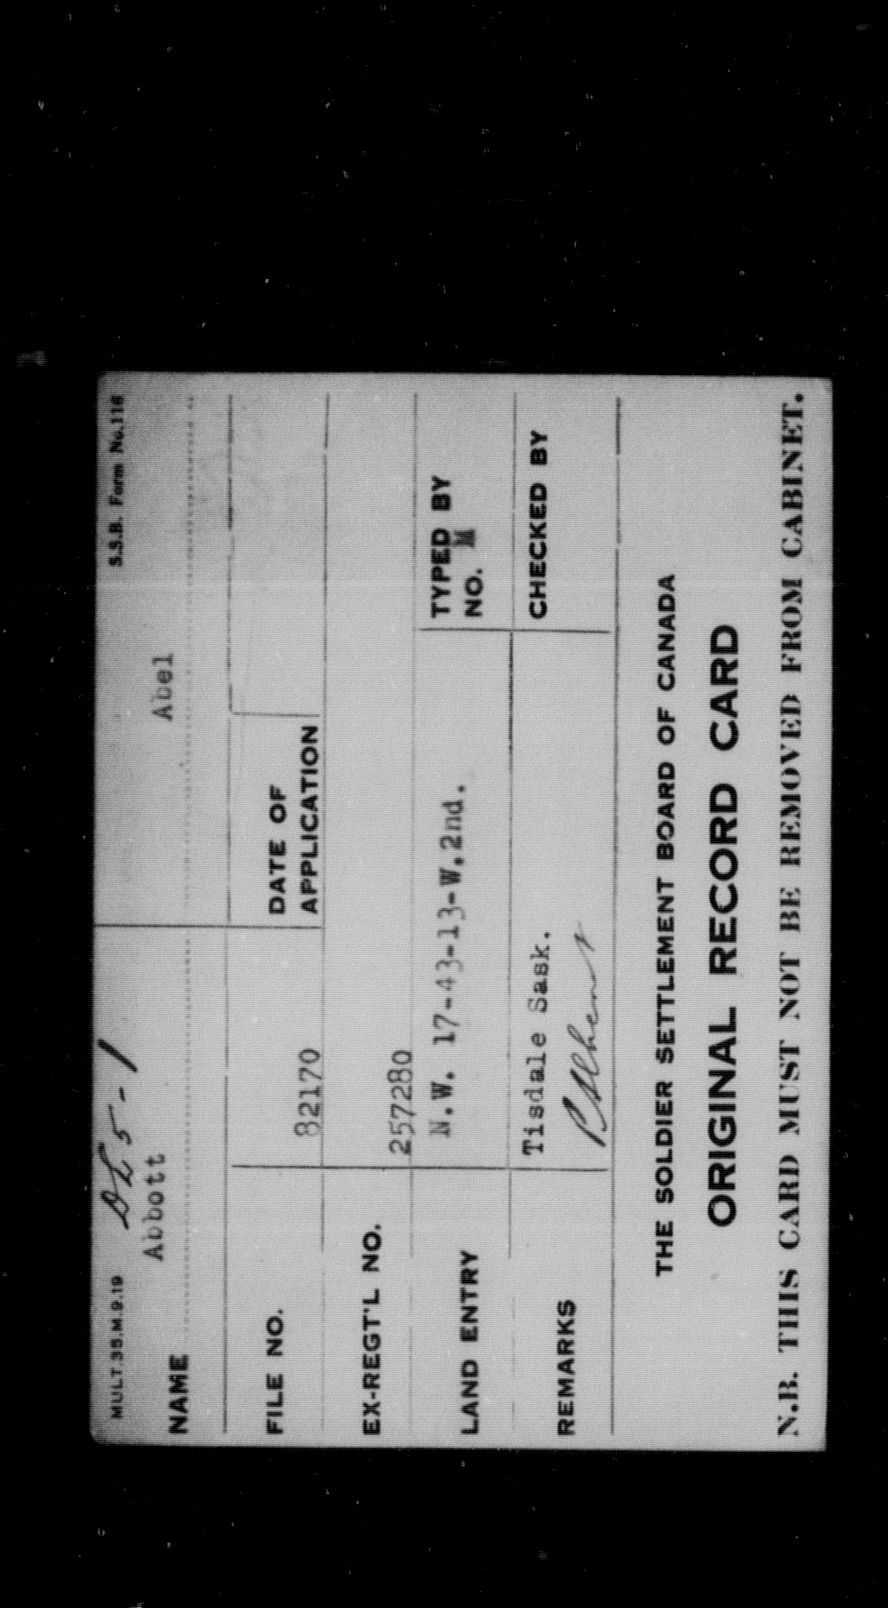 MULT 35.M.9.19 S.S.B. Form No.116
DL5-1
NAME Abbott Abel
FILE NO. 82170 DATE OF APPLICATION
EX-REGT'L NO. 257280
LAND ENTRY N.W. 17-43-13-W.2nd. TYPED BY NO. M
REMARKS Tisdale Sask. CHECKED BY
THE SOLDIER SETTLEMENT BOARD OF CANADA
ORIGINAL RECORD CARD
N.B. THIS CARD MUST NOT BE REMOVED FROM CABINET.